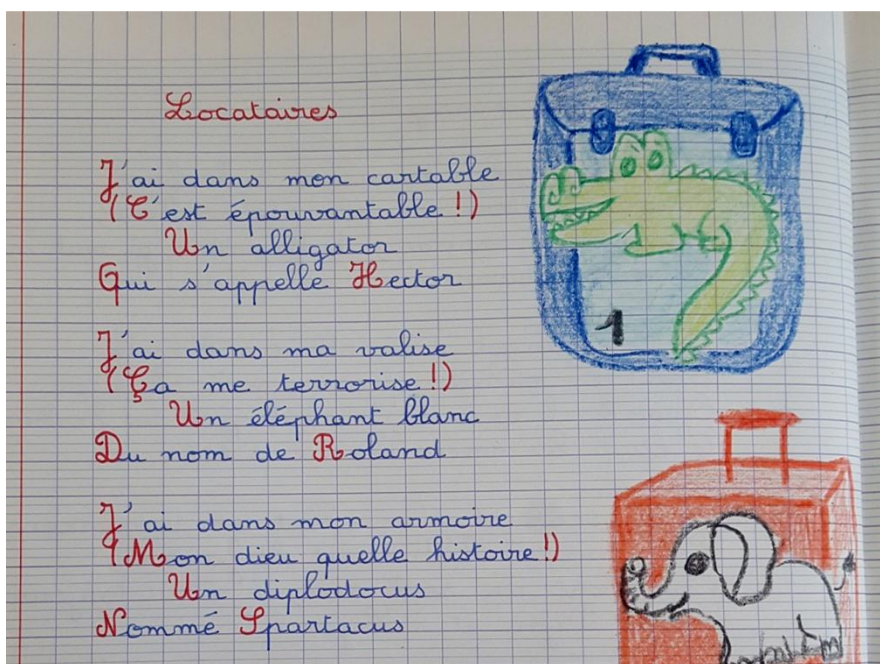 Locataires
J'ai dans mon cartable
(C'est épouvantable !)
Un alligator
Qui s'appelle Hector
J'ai dans ma valise
(Ça me terrorise !)
Un éléphant blanc
Du nom de Roland
J'ai dans mon armoire
(Mon dieu quelle histoire !)
Un diplodocus
Nommé Spartacus
1